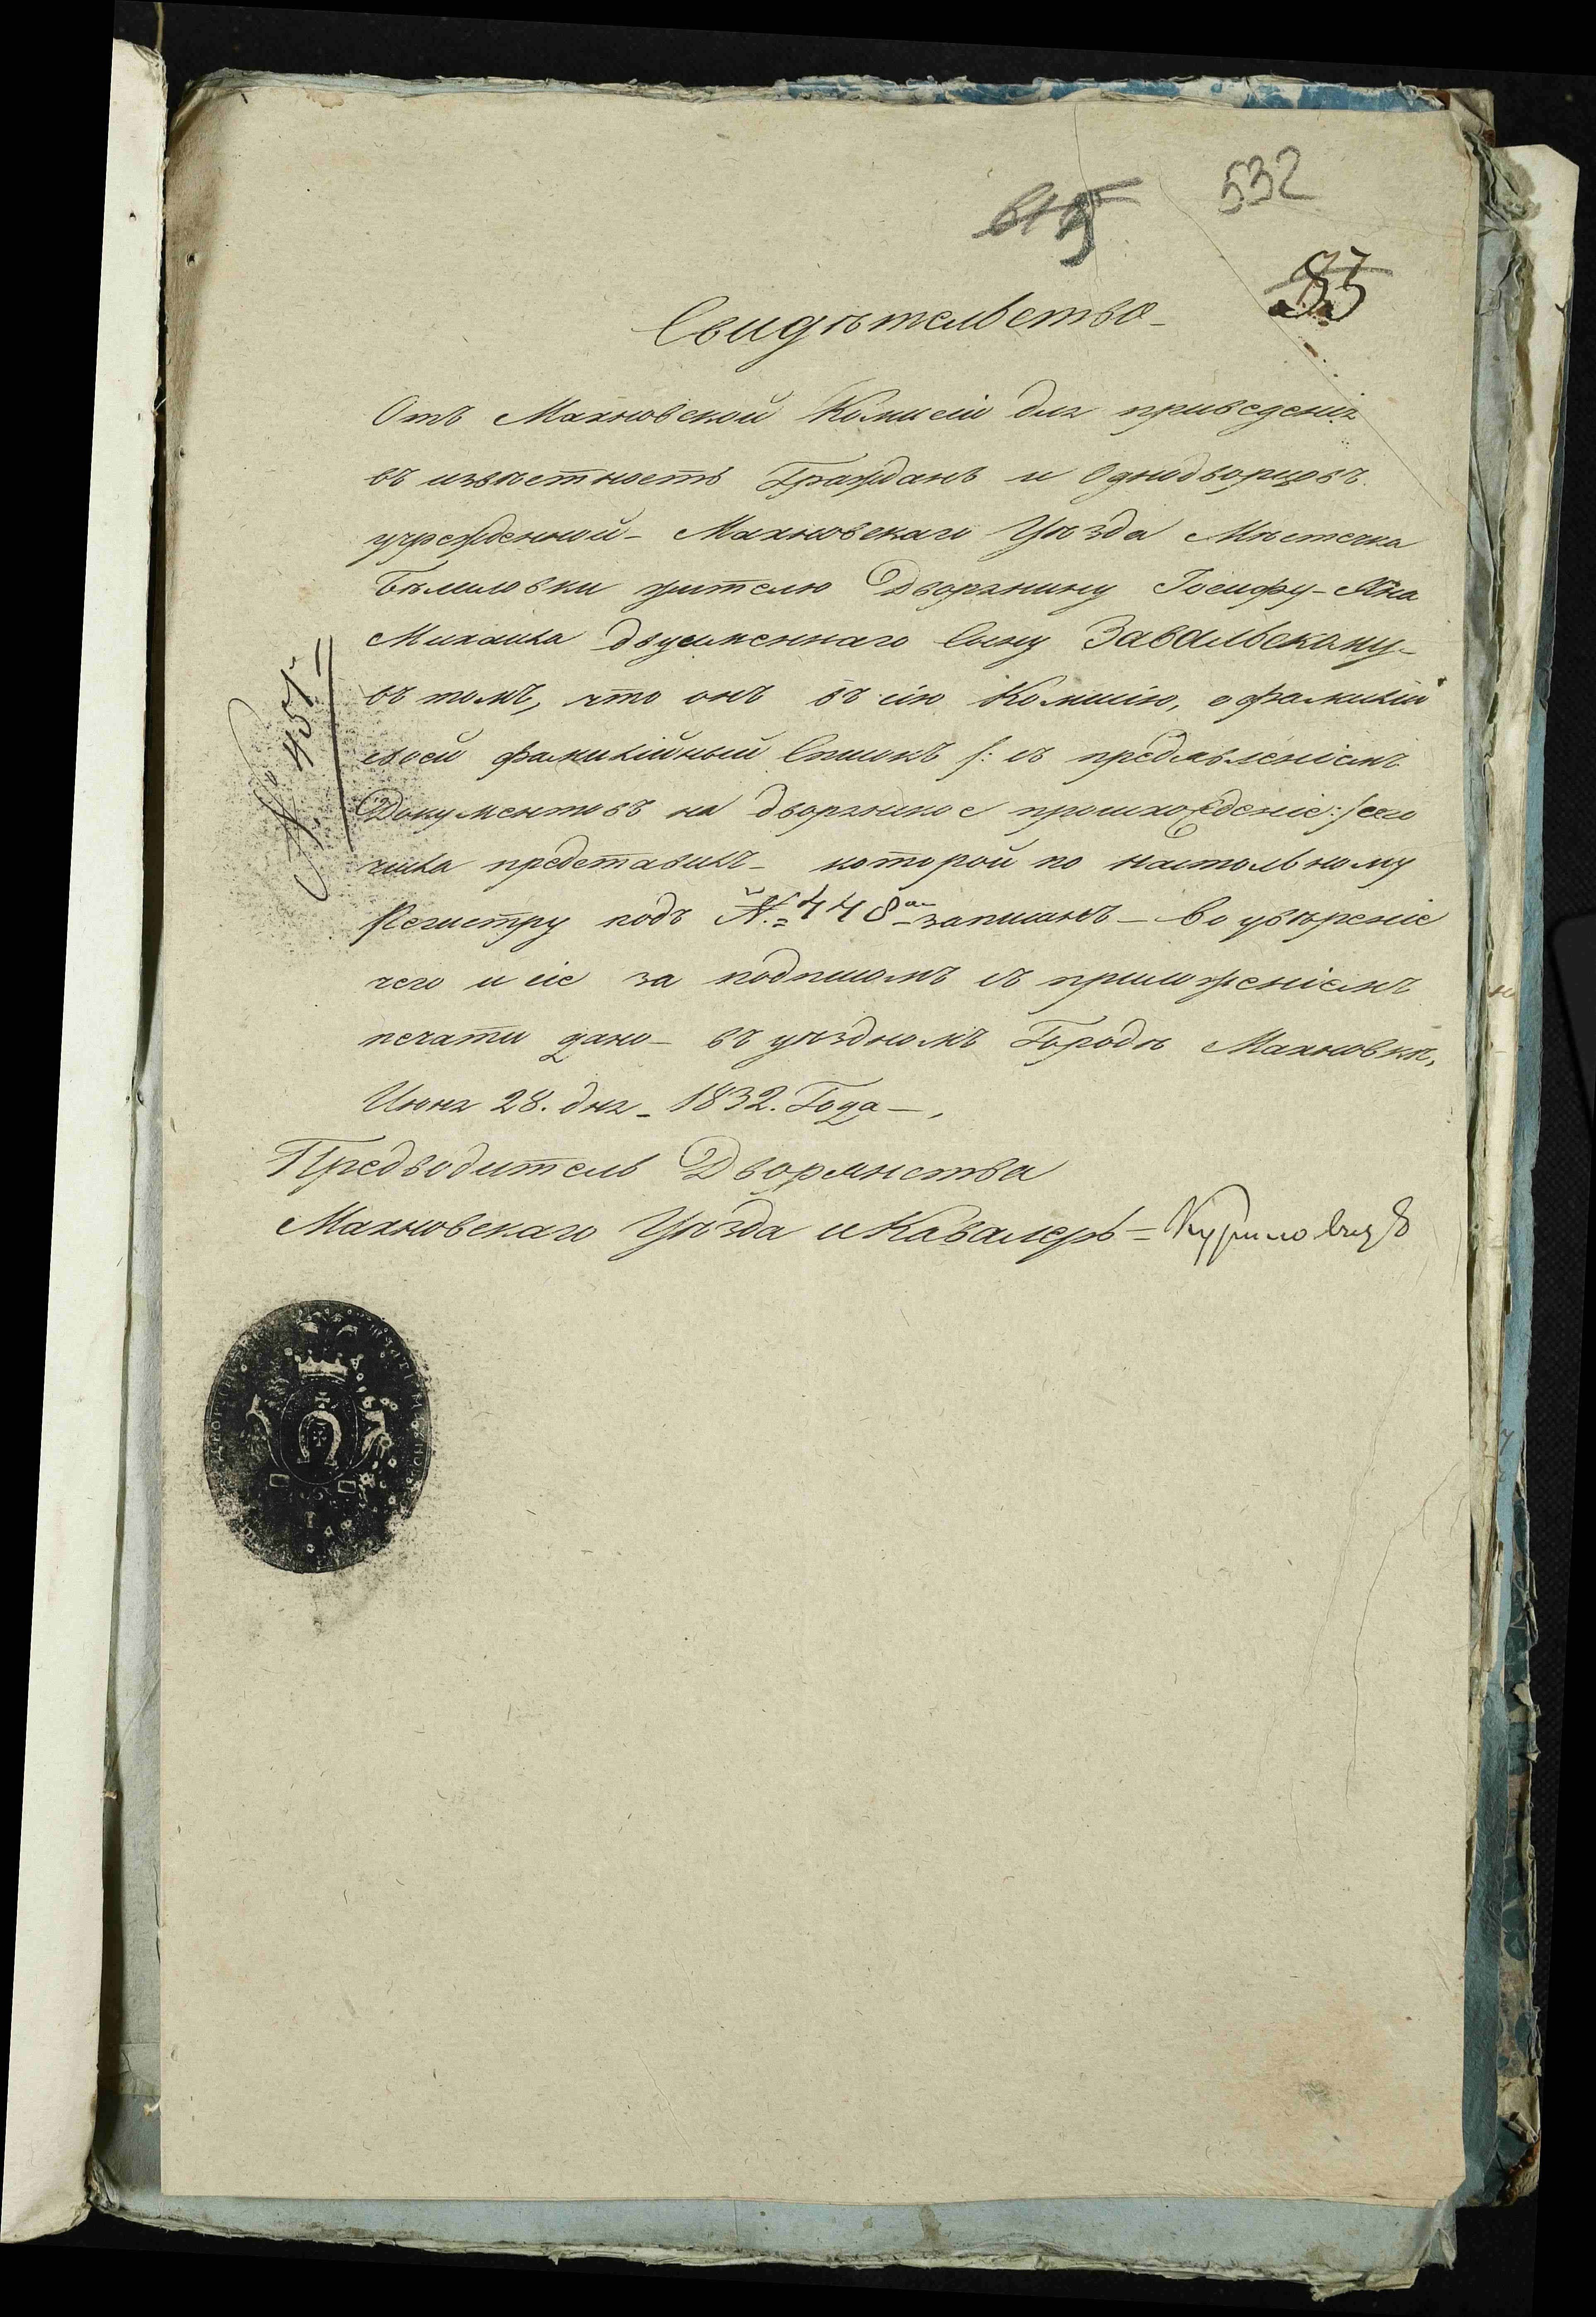 532
85
Свидѣтельство
Отъ Махновской Комисіи для приведенія
въ извѣстность Гражданъ и Однодворцовъ
учрежденной - Махновскаго Уѣзда Мѣстечка
Бѣлиловки жителю Дворянину Іосифу - Яна
Михаила двуименнаго сыну Завальскому -
въ томъ, что онъ въ сію Комисію, о фамиліи
своей фамилійный Списокъ /: съ предъявленіемъ
Документовъ на дворянское происхожденіе :/ сего
числа представилъ - которой по настольному
Регистру подъ №. 448 записанъ - Во увѣреніе
чего и сіе за подписомъ съ приложеніемъ
печати дано - въ уѣздномъ Городѣ Махновкѣ,
Июня 28. дня - 1832. Года -,
Предводитель Дворянства
Махновскаго Уѣзда и Кавалеръ =
№ 451